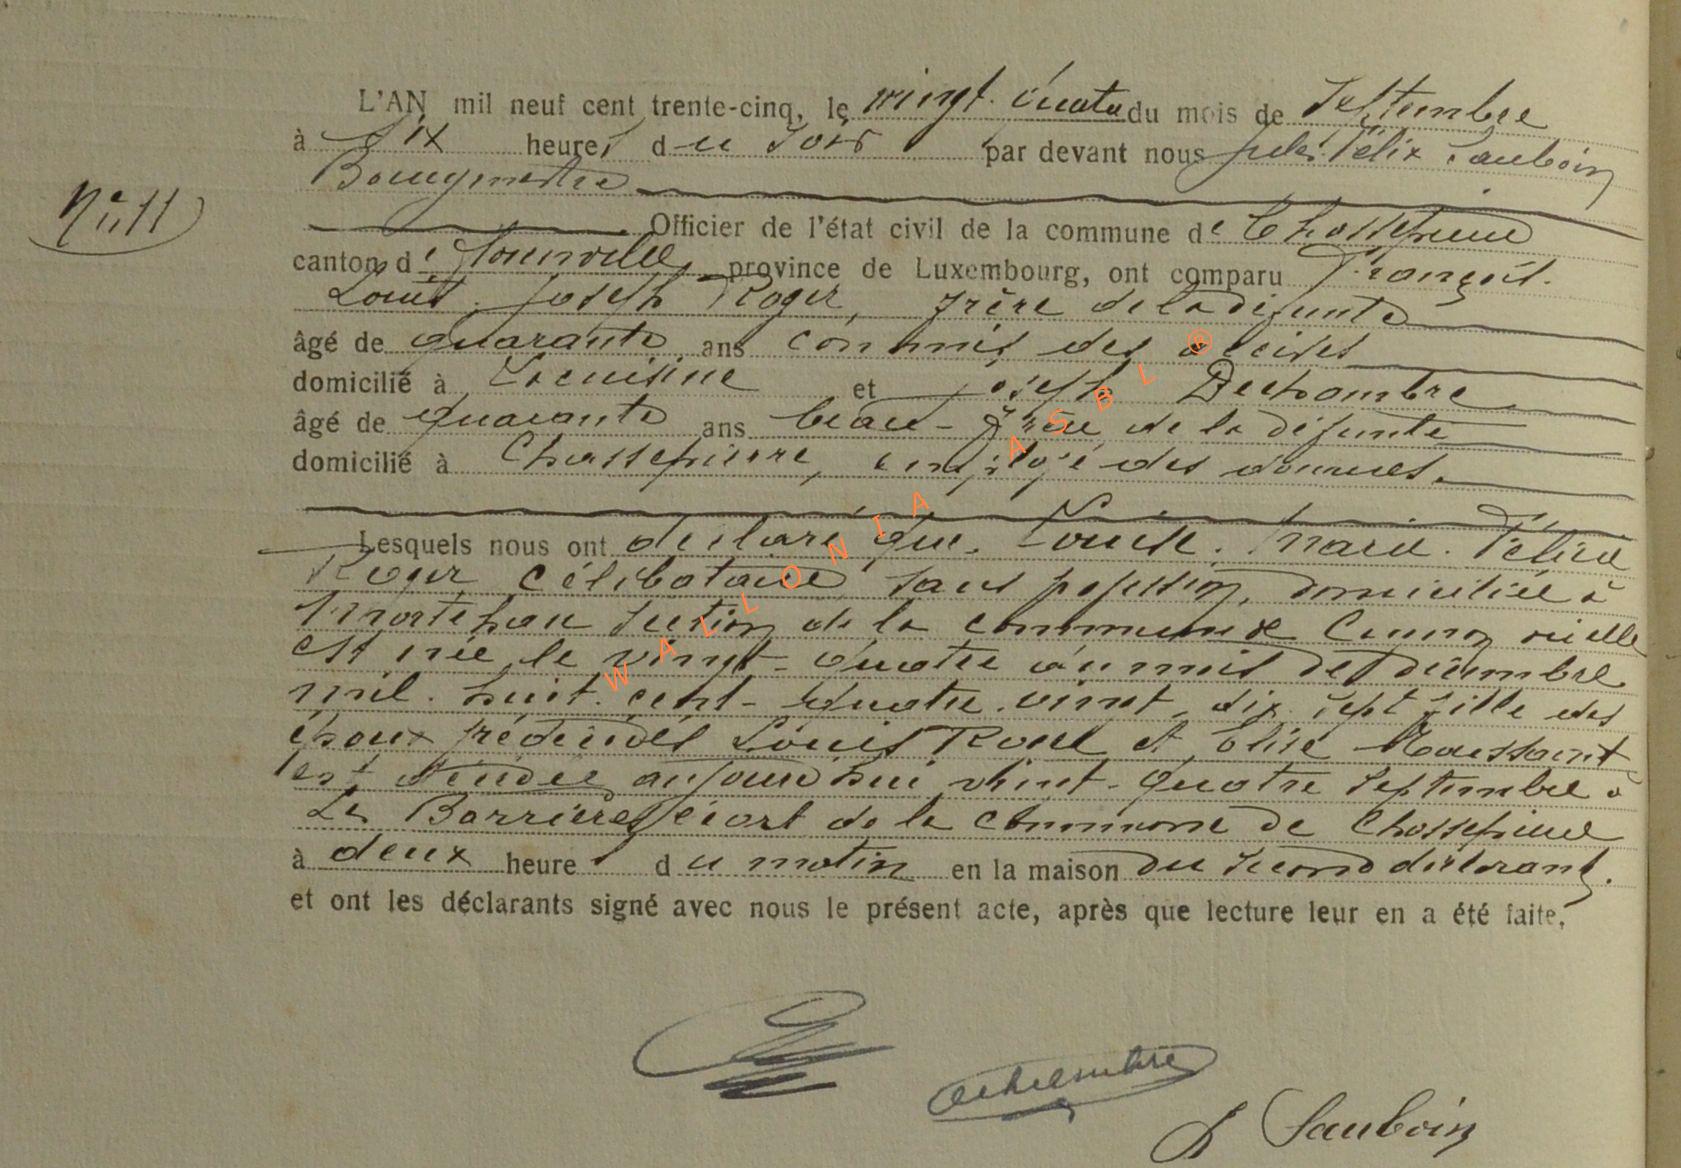 L'AN mil neuf cent trente-cinq, le vingt-quatre du mois de Septembre
à six heures du soir par devant nous Jules Félix Sauboin
Bourgmestre
N° 11
Officier de l'état civil de la commune de Chassepierre
canton de Florenville, province de Luxembourg, ont comparu François.
Louis. Joseph Roger, frère de la défunte
âgé de quarante ans commis des accises
domicilié à Lacuisine et Joseph Dechambre
âgé de quarante ans beau-frère de la défunte
domicilié à Chassepierre, employé des douanes.
Lesquels nous ont déclaré que Louise. Marie. Félicie
Roger, célibataire sans profession, domiciliée à
Mortehan section de la commune de Cugnon où elle
est née le vingt-quatre du mois de décembre
mil. huit. cent-quatre. vingt. dix. sept fille des
époux prédécédés Louis Roger et Elise Toussaint
est décédée aujourd'hui vingt-quatre septembre à
La Barrière, écart de la commune de Chassepierre
à deux heures du matin en la maison du second déclarant.
et ont les déclarants signé avec nous le présent acte, après que lecture leur en a été faite.
Dechambre
J Sauboin
WALLONIA ASBL ®